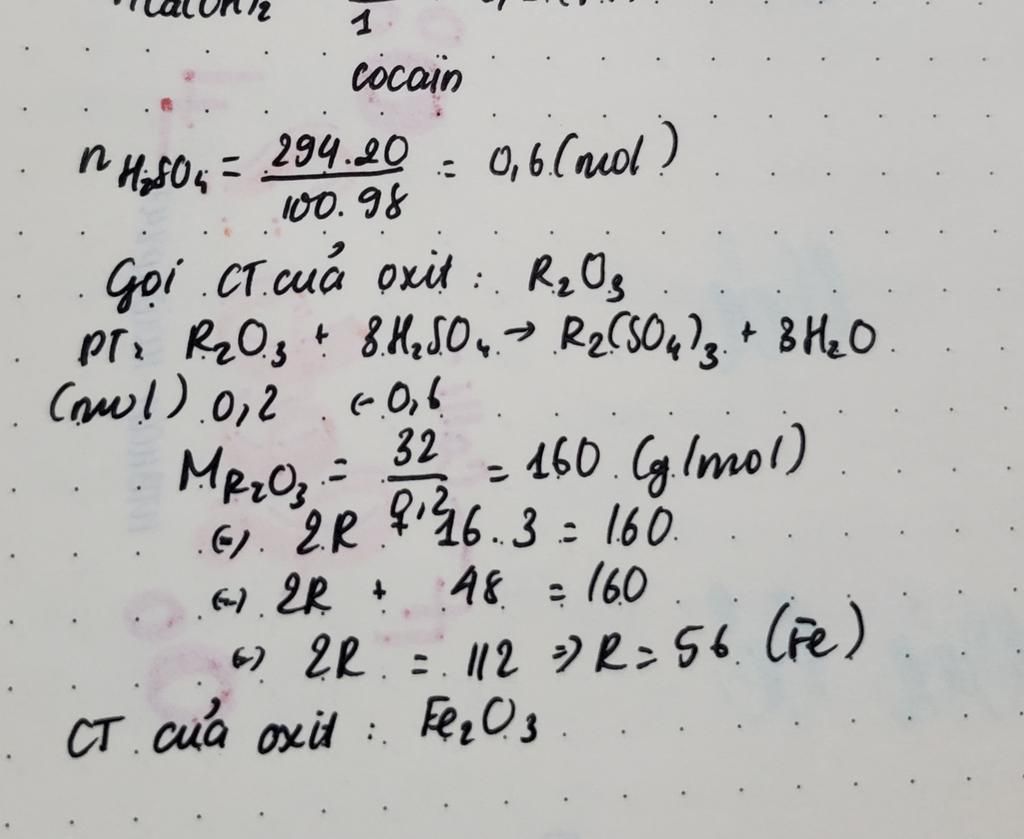 1
cocain
nH₂SO₄ = 294.20/100.98 = 0,6 (mol)
Gọi CT của oxit : R₂O₃
PT: R₂O₃ + 3H₂SO₄ → R₂(SO₄)₃ + 3H₂O
(mol) 0,2 ← 0,6
MR₂O₃ = 32/0,2 = 160 (g/mol)
(=) 2R + 16.3 = 160
(=) 2R + 48 = 160
(=) 2R = 112 => R = 56 (Fe)
CT của oxit : Fe₂O₃